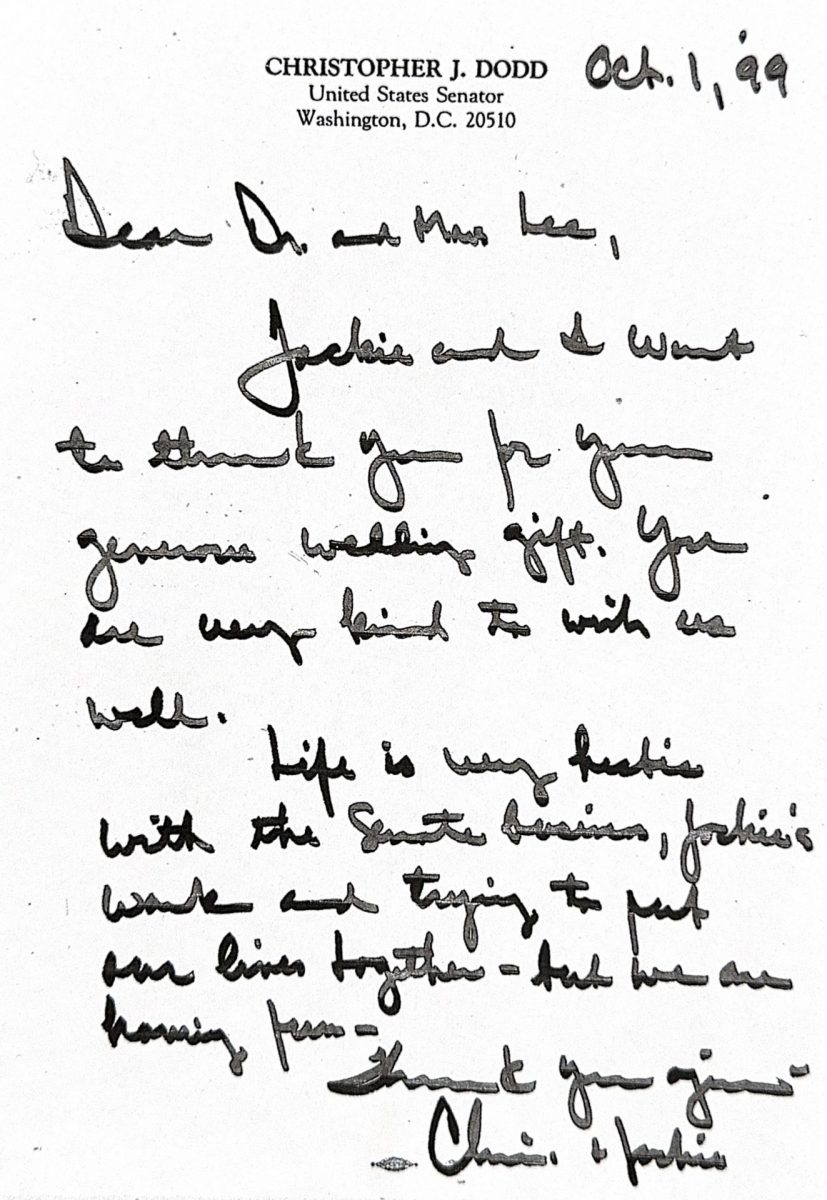 CHRISTOPHER J. DODD
United States Senator
Washington, D.C. 20510
Oct. 1, '99
Dear Dr. and Mrs Lee,
Jackie and I want
to thank you for your
generous wedding gift. You
are very kind to wish us
well.
Life is very hectic
with the Senate business, Jackie's
work and trying to put
our lives together - but we are
having fun -
Thank you again -
Chris. & Jackie